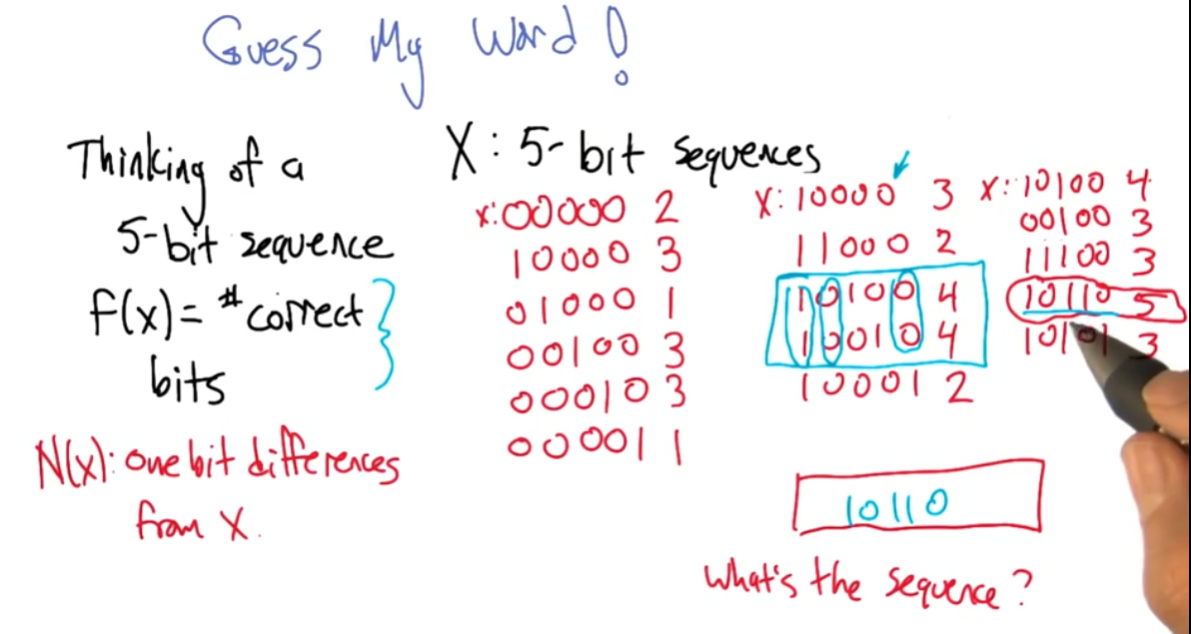 Guess My Word!
Thinking of a
5-bit sequence
f(x) = # correct
bits
N(x): one bit differences
from X.
X: 5-bit sequences
x: 00000 2
10000 3
01000 1
00100 3
00010 3
00001 1
X: 10000 3
11000 2
10100 4
10010 4
10001 2
X: 10100 4
00100 3
11100 3
10110 5
10101 3
10110
what's the sequence?